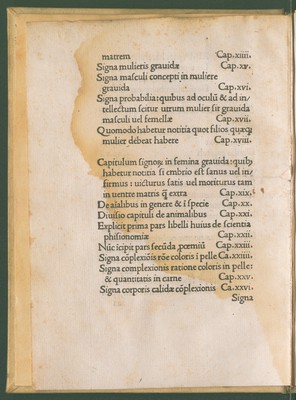 matrem Cap.xiiii.
Signa mulieris grauidæ Cap.xv.
Signa masculi concepti in muliere
grauida Cap.xvi.
Signa probabilia: quibus ad oculū & ad in/
tellectum scitur utrum mulier sit grauida
masculi uel femellæ Cap.xvii.
Quomodo habetur notitia quot filios quæqȝ
mulier debeat habere Cap.xviii.
Capitulum signoꝝ in femina grauida: quibȝ
habetur notitia si embrio est sanus uel in/
firmus: uicturus satis uel moriturus tam
in uentre matris q̄ extra Cap.xix.
De aīalibus in genere & ī specie Cap.xx.
Diuisio capituli de animalibus Cap.xxi.
Explicit prima pars libelli huius de scientia
phisionomiæ Cap.xxii.
Nūc īcipit pars secūda, proemiū Cap.xxiii.
Signa cōplexiōis rōe coloris ī pelle Ca.xxiiii.
Signa complexionis ratione coloris in pelle:
& quantitatis in carne Cap.xxv.
Signa corporis calidæ cōplexionis Ca.xxvi.
Signa